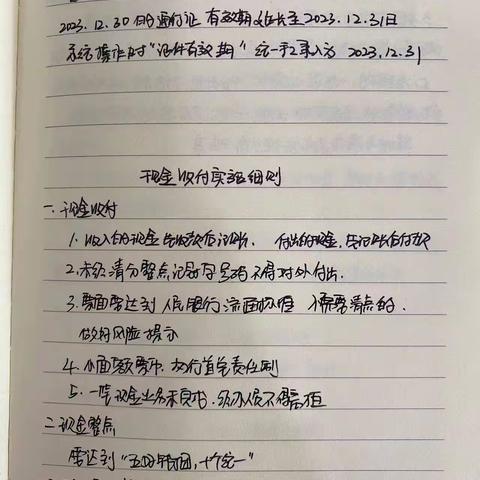 2023.12.30日的通行证 有效期延长至2023.12.31日
系统操作时“证件有效期”统一手工录入为 2023.12.31
现金收付实施细则
一.现金收付
1.收入的现金先收款后记账、付出的现金,先记账后付款
2.未经清分整点记录冠字号码不得对外付出.
3.票面需达到人民银行流通标准 不需要清点的.
做好风险提示
4.小面额零币,执行首问责任制
5.一笔现金业务未完成,经办人员不得离柜
二.现金整点
需达到“五好钱捆,十个一”